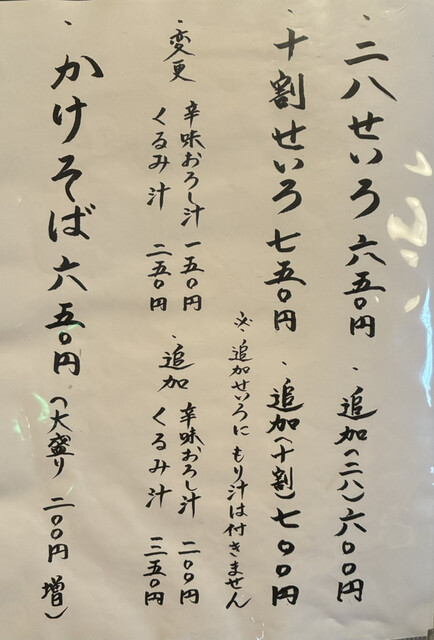 ・二八せいろ 六五〇円 ・追加(二八)六〇〇円
・十割せいろ 七五〇円 ・追加(十割)七〇〇円
※追加せいろに もり汁は付きません
・変更 辛味おろし汁 一五〇円
くるみ汁 二五〇円
・追加 辛味おろし汁 二〇〇円
くるみ汁 三五〇円
・かけそば 六五〇円 (大盛り 二〇〇円 増)